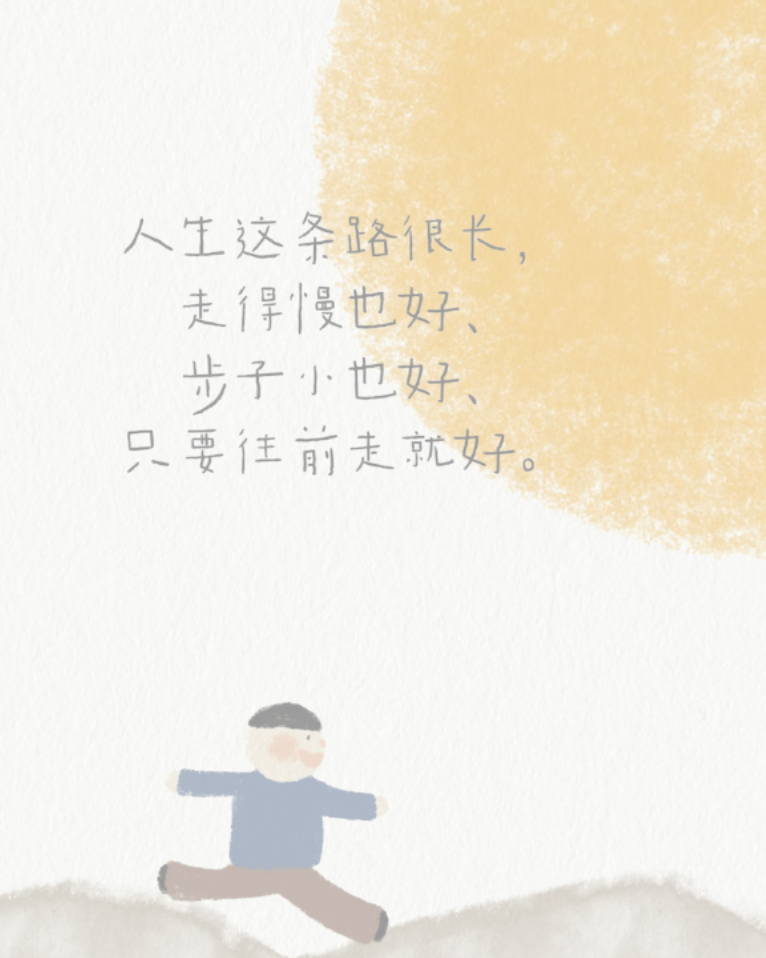 人生这条路很长，
走得慢也好、
步子小也好、
只要往前走就好。